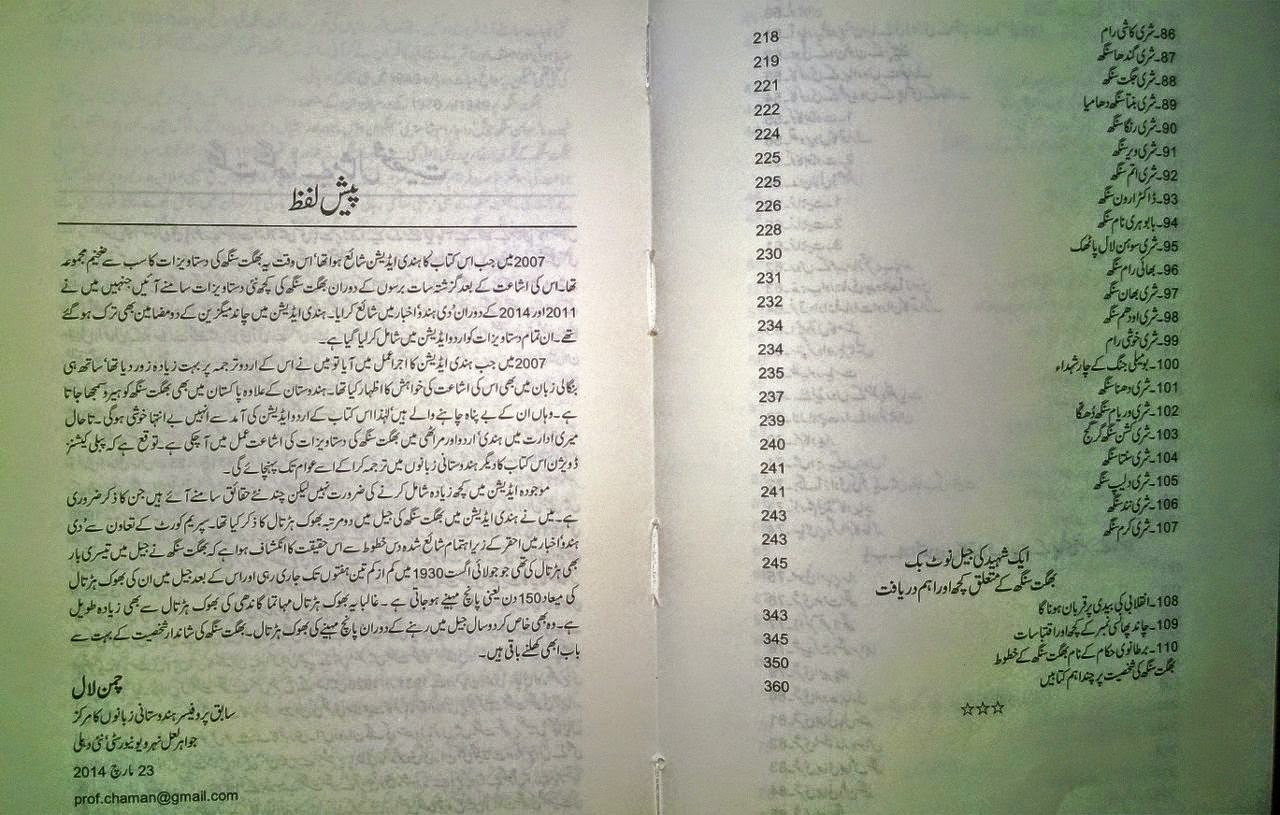 86۔شری کاشی رام 218
87۔شری گندھا سنگھ 219
88۔شری جگت سنگھ 221
89۔شری بنتا سنگھ دھامیا 222
90۔شری رنگا سنگھ 224
91۔شری ویر سنگھ 225
92۔شری اتم سنگھ 225
93۔ڈاکٹر ارون سنگھ 226
94۔بابو ہری نام سنگھ 228
95۔شری سوہن لال پاٹھک 230
96۔بھائی رام سنگھ 231
97۔شری بھان سنگھ 232
98۔شری اودھم سنگھ 234
99۔شری خوشی رام 234
100۔بومیلی جنگ کے چار شہداء 235
101۔شری دھنا سنگھ 237
102۔شری وریام سنگھ دُھگا 239
103۔شری کشن سنگھ گرگج 240
104۔شری سنتا سنگھ 241
105۔شری دلیپ سنگھ 241
106۔شری نند سنگھ 243
107۔شری کرم سنگھ 243
ایک شہید کی جیل نوٹ بک 245
بھگت سنگھ کے متعلق کچھ اور اہم دریافت
108۔انقلابی کی بیدی پر قربان ہونا گا 343
109۔چاند پھانسی نمبر کے کچھ اور اقتباسات 345
110۔برطانوی حکام کے نام بھگت سنگھ کے خطوط 350
بھگت سنگھ کی شخصیت پر چند اہم کتابیں 360
☆☆☆
پیش لفظ
2007میں جب اس کتاب کا ہندی ایڈیشن شائع ہوا تھا' اس وقت یہ بھگت سنگھ کی دستاویزات کا سب سے ضخیم مجموعہ
تھا۔اس کی اشاعت کے بعد گزشتہ سات برسوں کے دوران بھگت سنگھ کی کچھ نئی دستاویزات سامنے آئیں جنہیں میں نے
2011اور 2014کے دوران 'دی ہندو' اخبار میں شائع کرایا۔ ہندی ایڈیشن میں چاند میگزین کے دو مضامین بھی ترک ہوگئے
تھے۔ان تمام دستاویزات کو اردو ایڈیشن میں شامل کرلیا گیا ہے۔
2007میں جب ہندی ایڈیشن کا اجرا عمل میں آیا تو میں نے اس کے اردو ترجمہ پر بہت زیادہ زور دیا تھا' ساتھ ہی
بنگالی زبان میں بھی اس کی اشاعت کی خواہش کا اظہار کیا تھا۔ ہندوستان کے علاوہ پاکستان میں بھی بھگت سنگھ کو ہیرو سمجھا جاتا
ہے۔ وہاں ان کے بے پناہ چاہنے والے ہیں' لہٰذا اس کتاب کے اردو ایڈیشن کی آمد سے انہیں بے انتہا خوشی ہوگی۔ تا حال
میری ادارت میں ہندی' اردو اور مراٹھی میں بھگت سنگھ کی دستاویزات کی اشاعت عمل میں آچکی ہے۔ توقع ہے کہ پبلی کیشنز
ڈویژن اس کتاب کا دیگر ہندوستانی زبانوں میں ترجمہ کرا کے اسے عوام تک پہنچائے گی۔
موجودہ ایڈیشن میں کچھ زیادہ شامل کرنے کی ضرورت نہیں لیکن چند نئے حقائق سامنے آئے ہیں جن کا ذکر ضروری
ہے۔میں نے ہندی ایڈیشن میں بھگت سنگھ کی جیل میں دو مرتبہ بھوک ہڑتال کا ذکر کیا تھا۔ سپریم کورٹ کے تعاون سے 'دی
ہندو' اخبار میں احقر کے زیر اہتمام شائع شدہ دس خطوط سے اس حقیقت کا انکشاف ہوا ہے کہ بھگت سنگھ نے جیل میں تیسری بار
بھی ہڑتال کی تھی جو جولائی اگست 1930 میں کم از کم تین ہفتوں تک جاری رہی اور اس کے بعد جیل میں ان کی بھوک ہڑتال
کی میعاد 150دن یعنی پانچ مہینے ہوجاتی ہے۔ غالباً یہ بھوک ہڑتال مہاتما گاندھی کی بھوک ہڑتال سے بھی زیادہ طویل
ہے۔وہ بھی خاص کر دو سال جیل میں رہنے کے دوران پانچ مہینے کی بھوک ہڑتال۔ بھگت سنگھ کی شاندار شخصیت کے بہت سے
باب ابھی کھلنے باقی ہیں۔
چمن لال
سابق پروفیسر ہندوستانی زبانوں کا مرکز
جواہر لعل نہرو یونیورسٹی' نئی دہلی
23 مارچ 2014
prof.chaman@gmail.com